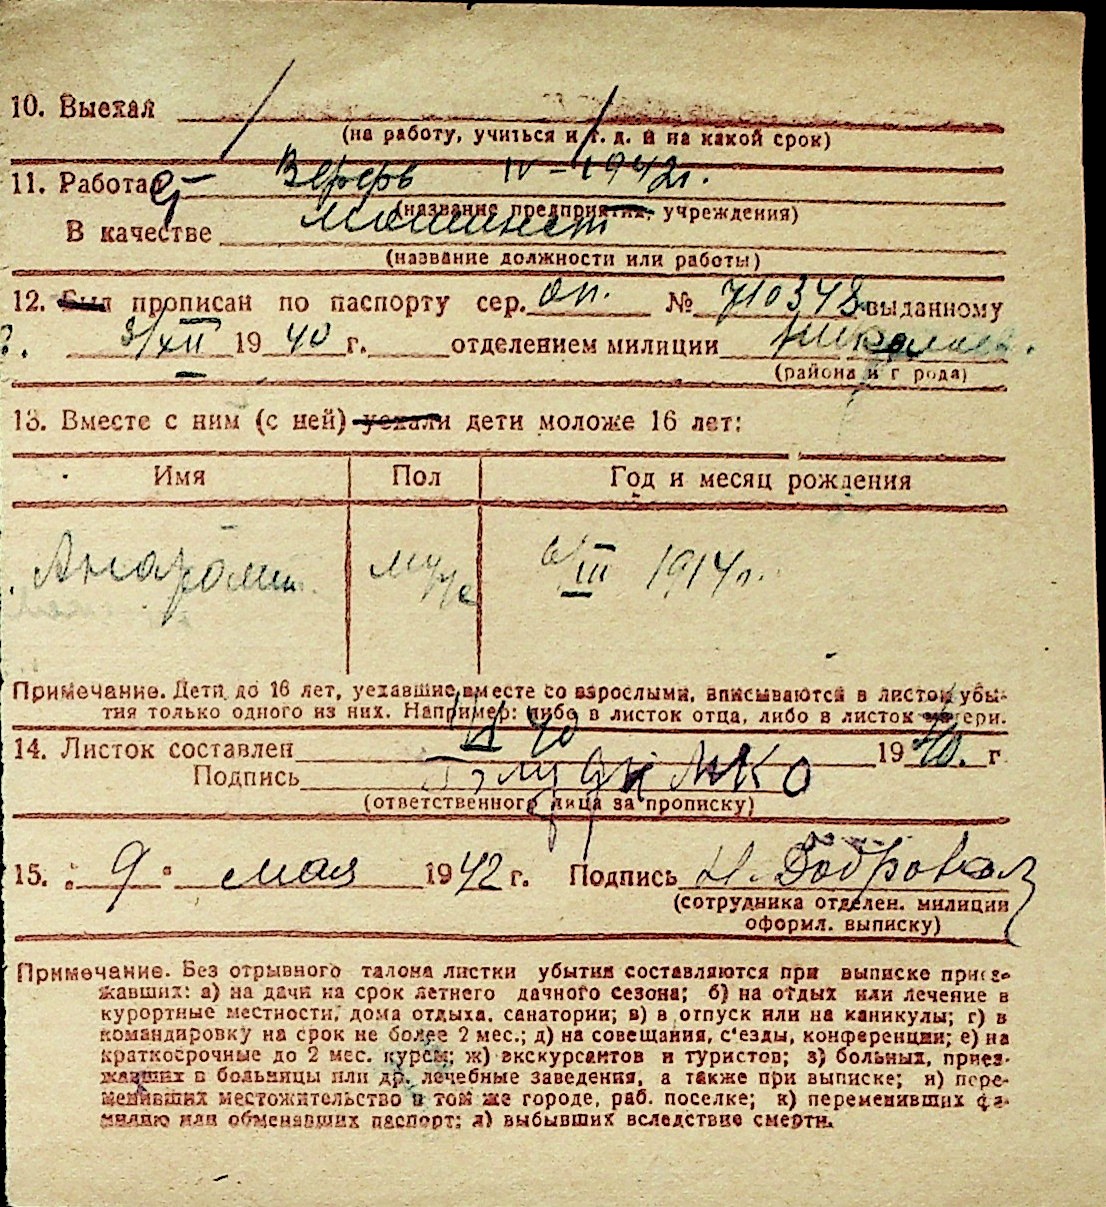 10. Выехал
(на работу, учиться и т. д. и на какой срок)
11. Работает Верфь IV–1942г.
(название предприятия, учреждения)
В качестве машинист
(название должности или работы)
12. Был прописан по паспорту сер. № 710348 выданному
3/XII 19 40 г. отделением милиции
(района и города)
13. Вместе с ним (с ней) уехали дети моложе 16 лет:
Имя Пол Год и месяц рождения
муж 6/III 1914г.
Примечание. Дети до 16 лет, уехавшие вместе со взрослыми, вписываются в листок убы-
тия только одного из них. Например: либо в листок отца, либо в листок матери.
14. Листок составлен 19 г.
Подпись
(ответственного лица за прописку)
15. „9“ мая 1942 г. Подпись Н. Добровол
(сотрудника отделен. милиции
оформл. выписку)
Примечание. Без отрывного талона листки убытия составляются при выписке приез-
жавших: а) на дачи на срок летнего дачного сезона; б) на отдых или лечение в
курортные местности, дома отдыха, санатории; в) в отпуск или на каникулы; г) в
командировку на срок не более 2 мес.; д) на совещания, с'езды, конференции; е) на
краткосрочные до 2 мес. курсы; ж) экскурсантов и туристов; з) больных, приез-
жавших в больницы или др. лечебные заведения, а также при выписке; и) пере-
менивших местожительство в том же городе, раб. поселке; к) переменивших фа-
милию или обменявших паспорт; л) выбывших вследствие смерти.